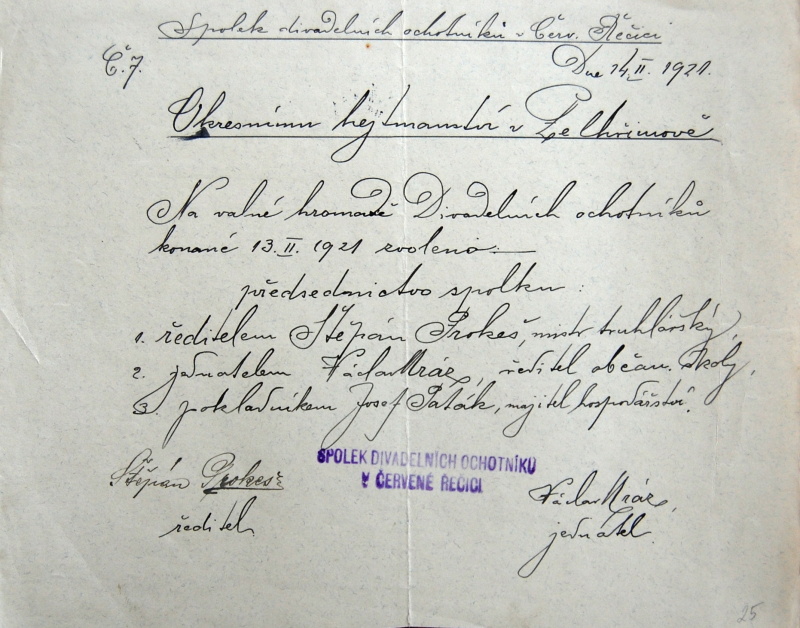 Spolek divadelních ochotníků v Červ. Řečici
Č. 7.
Dne 14. II. 1921.
Okresnímu hejtmanství v Pelhřimově
Na valné hromadě Divadelních ochotníků
konané 13. II. 1921 zvoleno:
předsednictvo spolku:
1. ředitelem Štěpán Prokeš, mistr truhlářský,
2. jednatelem Václav Mráz, ředitel občan. školy,
3. pokladníkem Josef Paták, majitel hospodářství.
SPOLEK DIVADELNÍCH OCHOTNÍKŮ
V ČERVENÉ ŘEČICI
Štěpán Prokeš
ředitel
Václav Mráz,
jednatel.
25